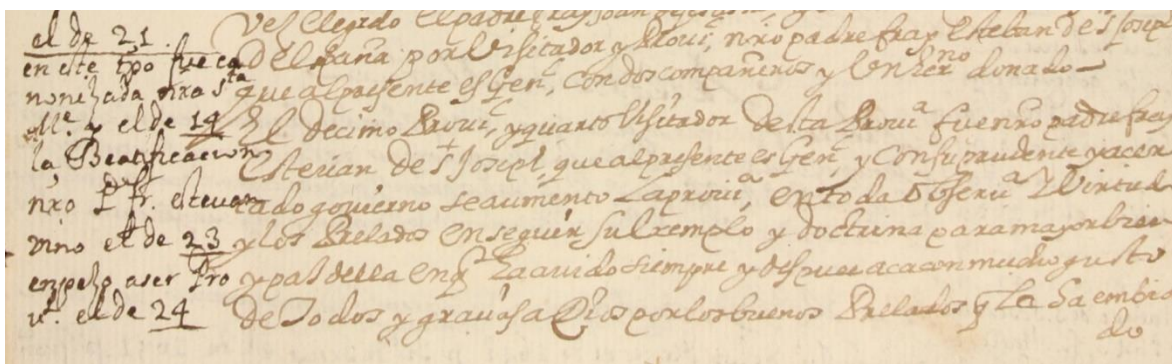 el de 21
en este tpo fue ca
nonizada nra Sta
Me. y el de 14
la Beatificacion
nro P fr. estevan
vino el de 23
enpezo a ser Pro
vl. el de 24
ves elegido el padre fray Joan
De España por Visitador y Prouil, nro padre fray Esteban de S Josepe
que al presente es Genl, con dos compañeros y Un herno donado
El decimo Prouil, y quarto Visitador desta Proua fue nro padre fray
Esteuan de S Joseph, que al presente es Genl, y con su prudente y acer
tado gouierno se aumento La prouia, en toda Obserua y Virtud
y los Prelados en seguir su exemplo y doctrina para mayor bien
y pas della en q La auido siempre y despues aca con mucho gusto
de Todos y gracias a Dios por los buenos Prelados q La ha embia
do